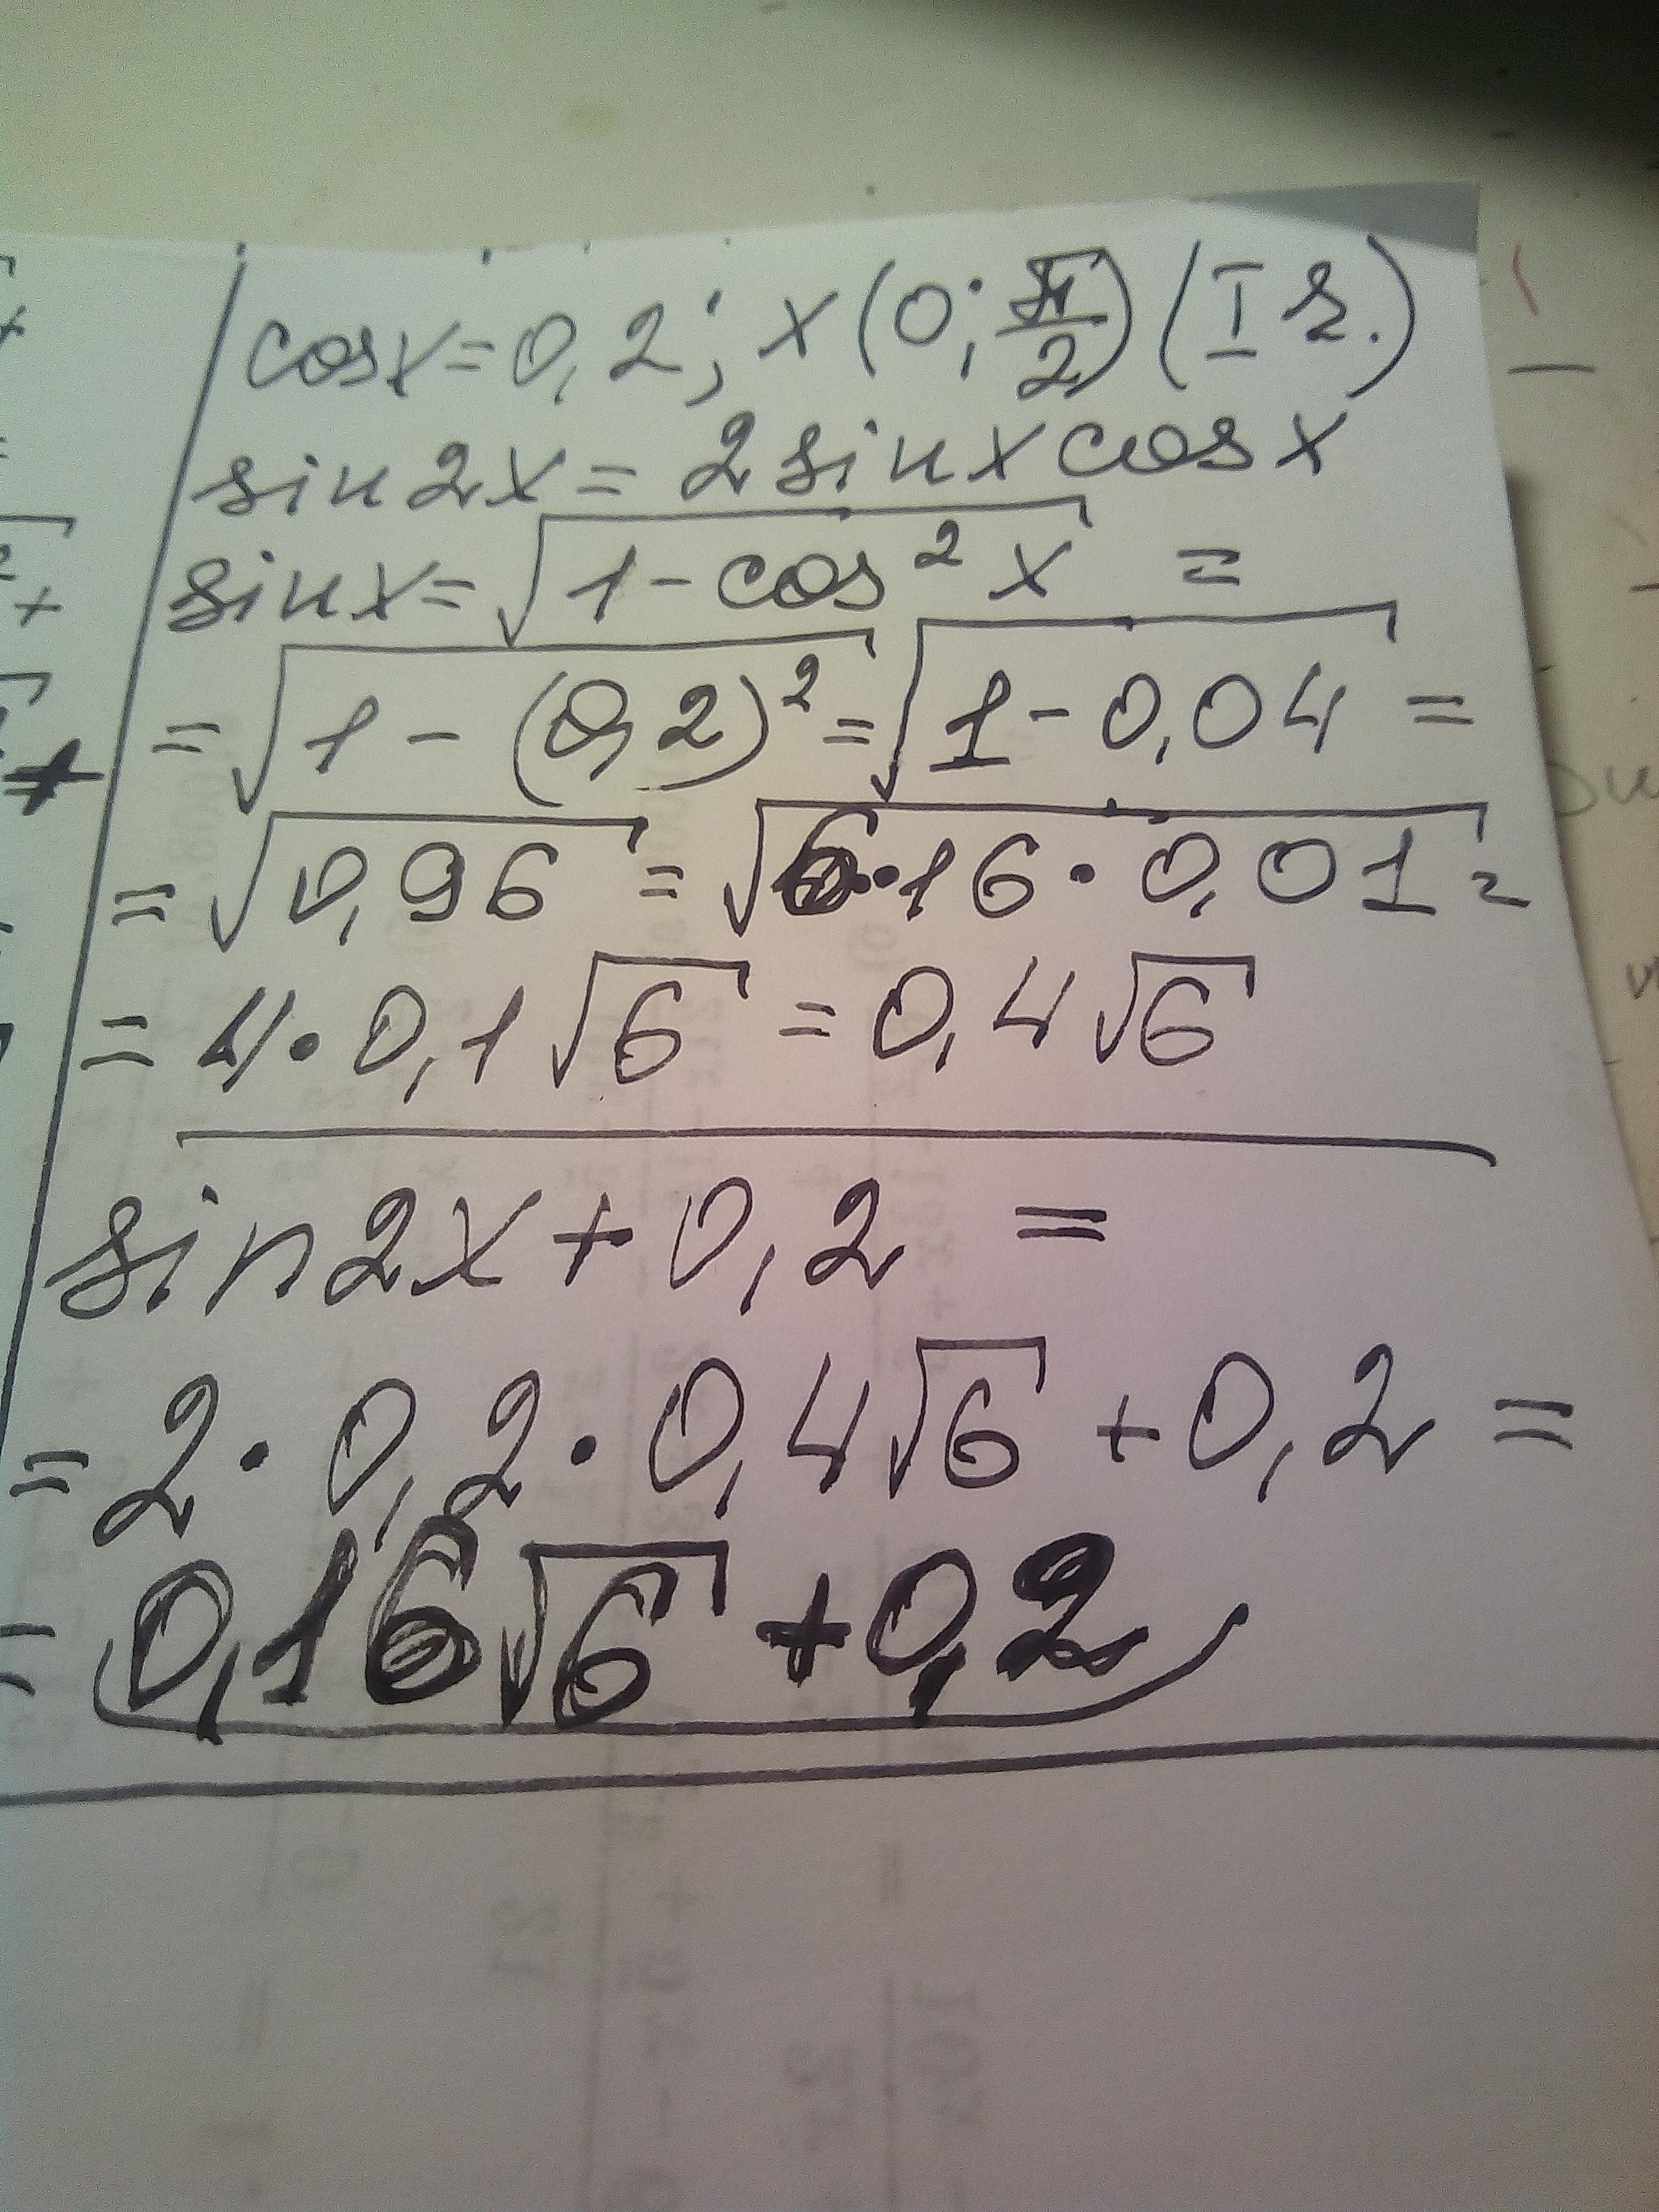 cosx=0,2; x(0;π/2)(I г.)
sin2x=2sinxcosx
sinx=√(1-cos²x) =
=√(1-(0,2)²)=√(1-0,04)=
=√(0,96)=√(6·16·0,01)=
=4·0,1√6=0,4√6
sin2x+0,2=
=2·0,2·0,4√6+0,2=
=0,16√6+0,2